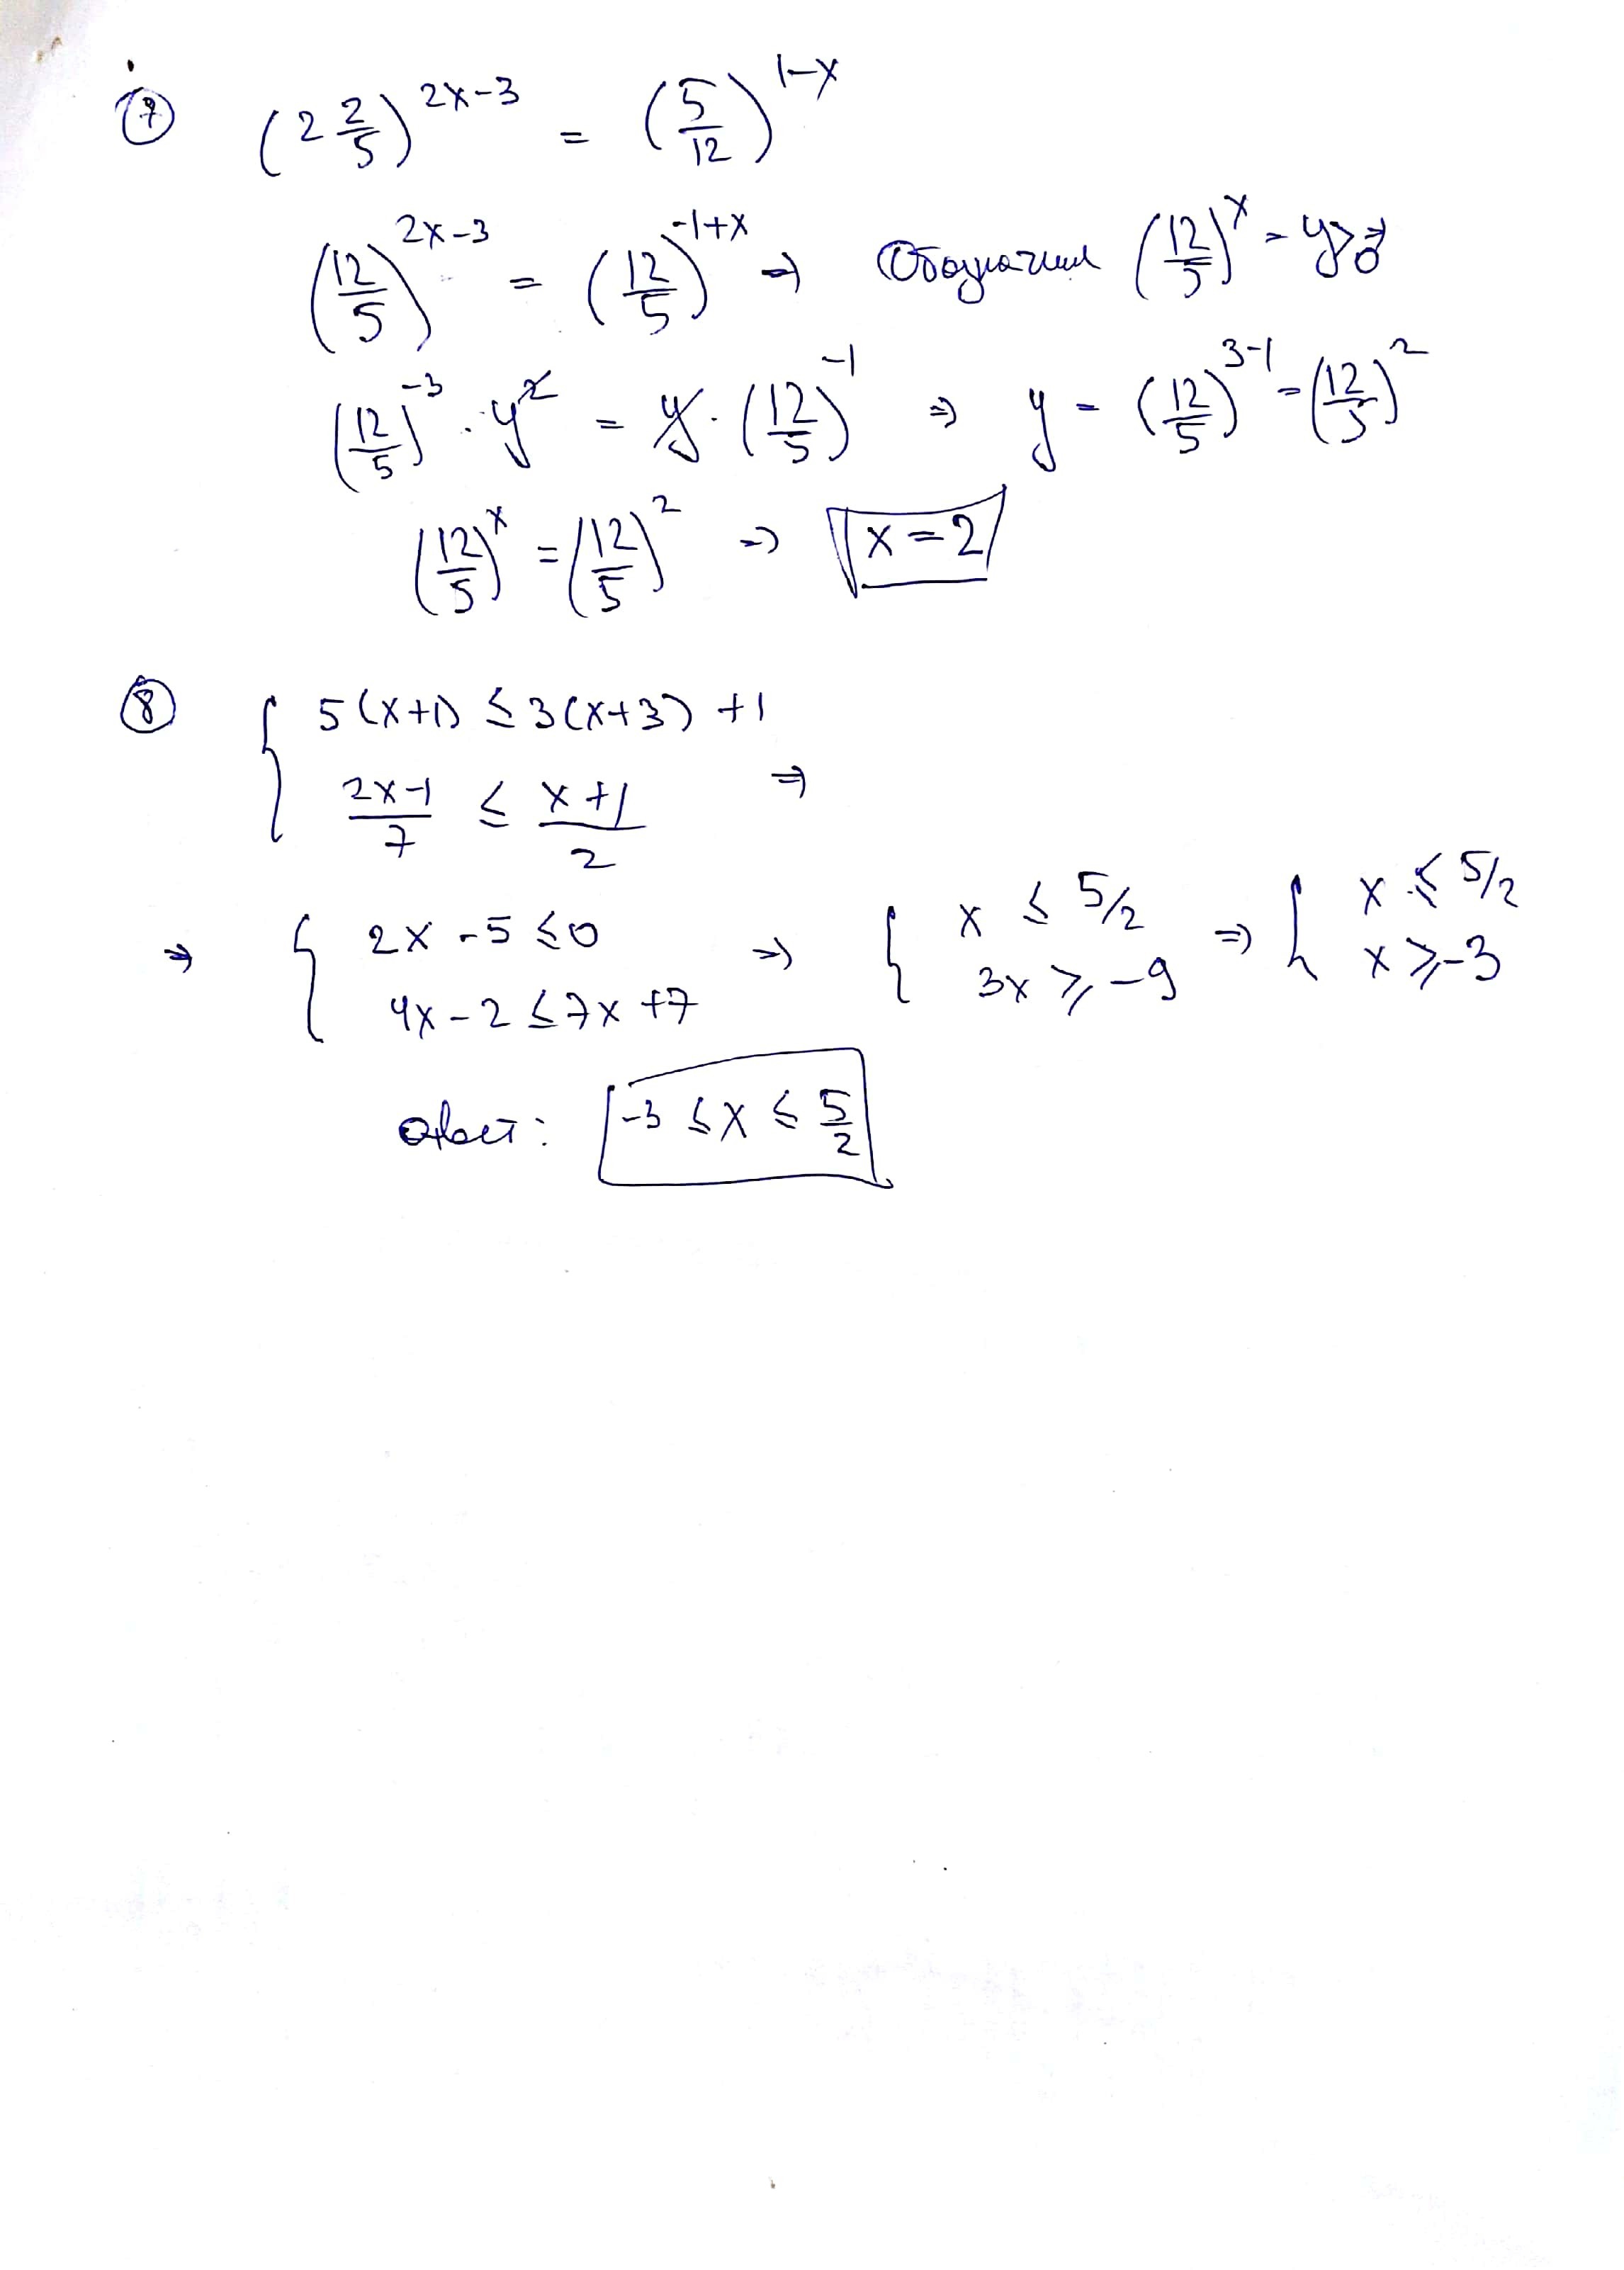 ⑦ (2 2/5)^(2x-3) = (5/12)^(1-x)
(12/5)^(2x-3) = (12/5)^(-1+x) ⇒ Обозначим (12/5)^x = y>0
(12/5)^(-3) · y^2 = y · (12/5)^(-1) ⇒ y = (12/5)^(3-1) = (12/5)^2
(12/5)^x = (12/5)^2 ⇒ x = 2
⑧ { 5(x+1) ≤ 3(x+3) + 1
(2x-1)/7 ≤ (x+1)/2 ⇒
⇒ { 2x - 5 ≤ 0 ⇒ { x ≤ 5/2 ⇒ { x ≤ 5/2
4x - 2 ≤ 7x + 7 3x ≥ -9 x ≥ -3
Ответ: -3 ≤ x ≤ 5/2